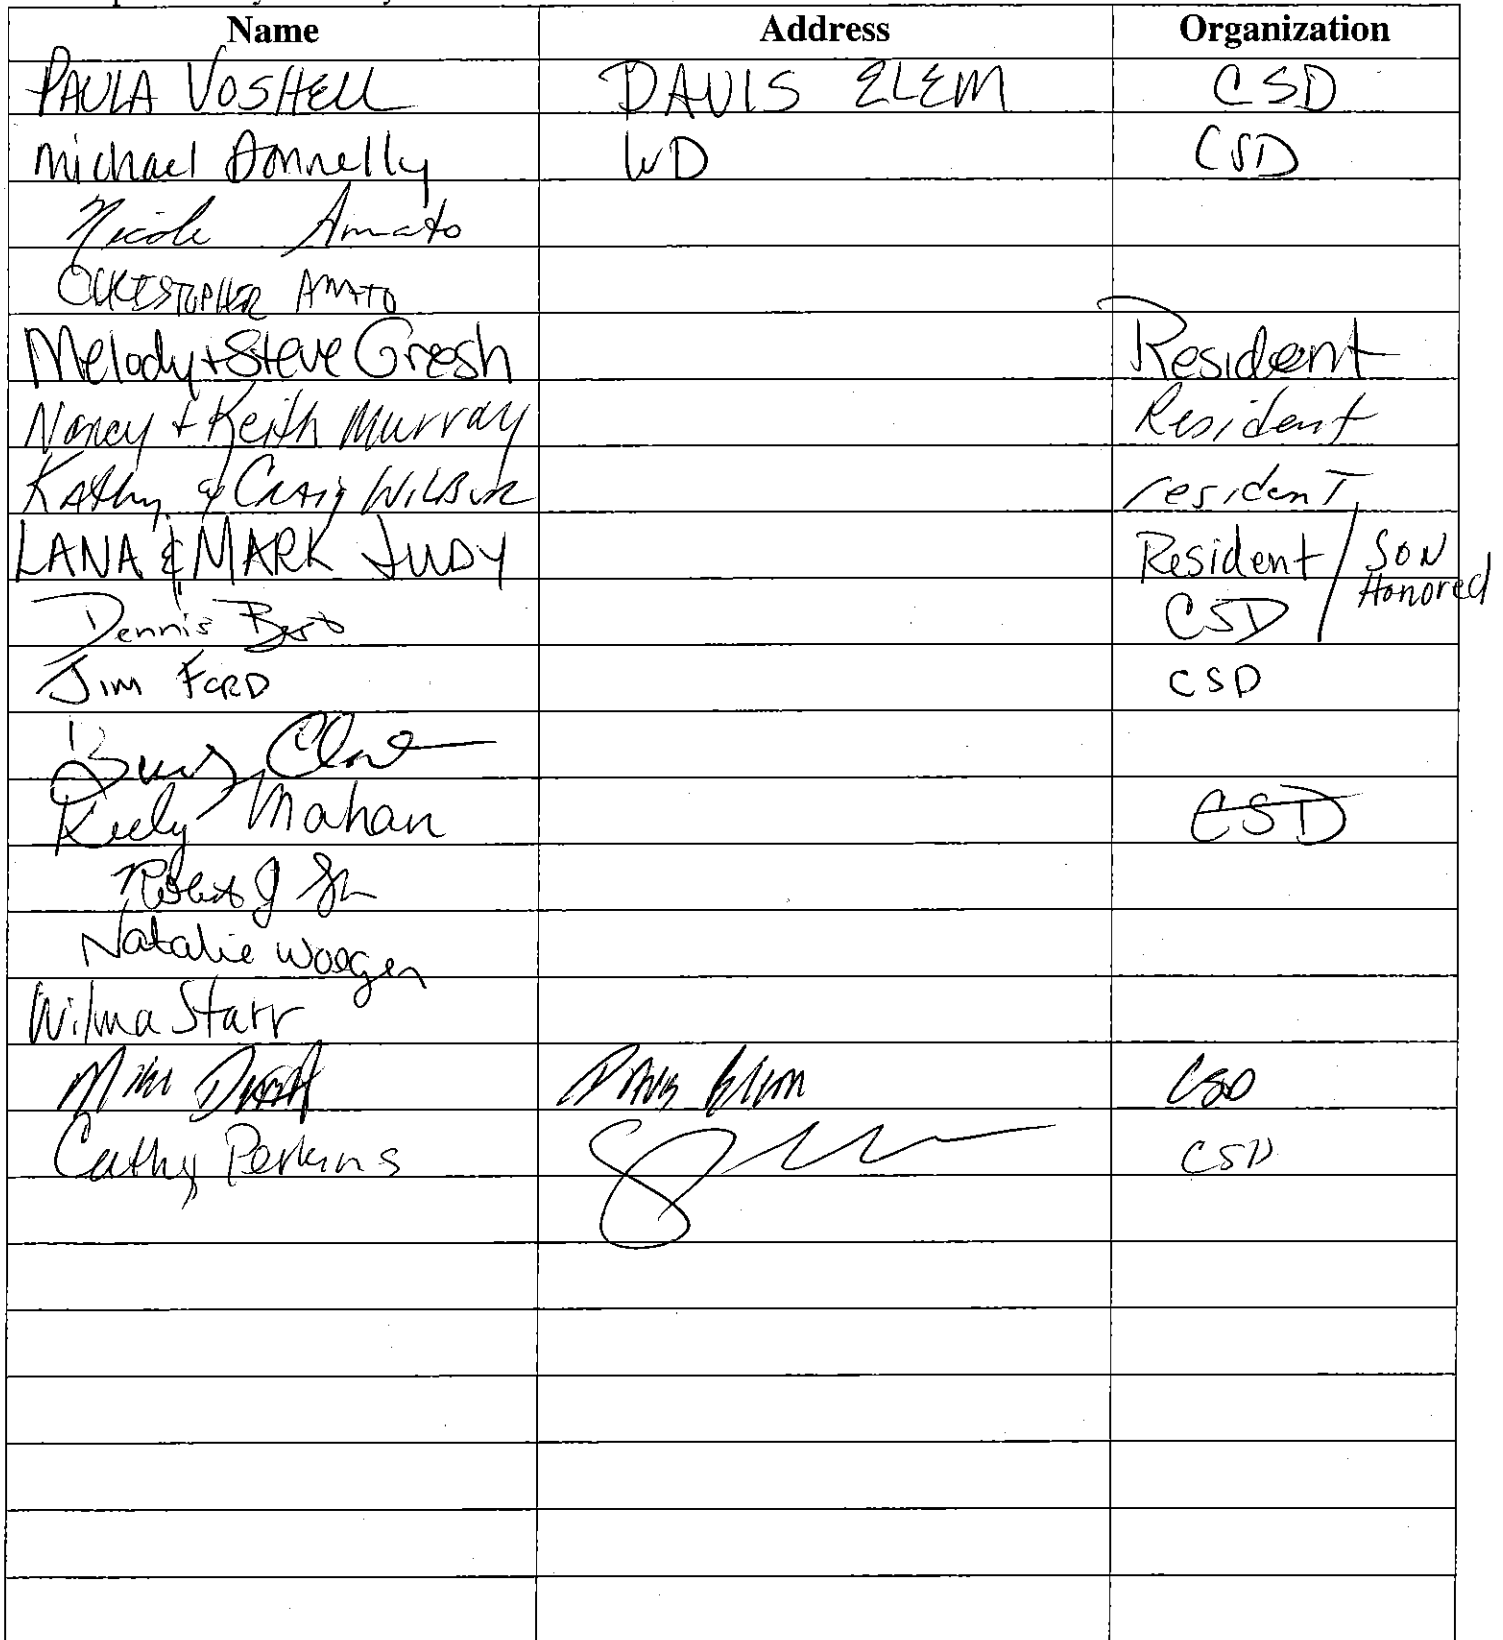 Name Address Organization
PAULA VOSHELL DAVIS ELEM CSD
Michael Donnelly WD CSD
Nicole Amato
CHRISTOPHER AMATO
Melody + Steve Gresh Resident
Nancy + Keith Murray Resident
Kathy & Craig Wilbur resident
LANA & MARK JUDY Resident / SON Honored
Dennis Best CSD
Jim FORD CSD
Keely Mahan CSD
Robert J
Natalie Woogen
Wilma Starr
Davis Elem CSD
Cathy Perkins CSD